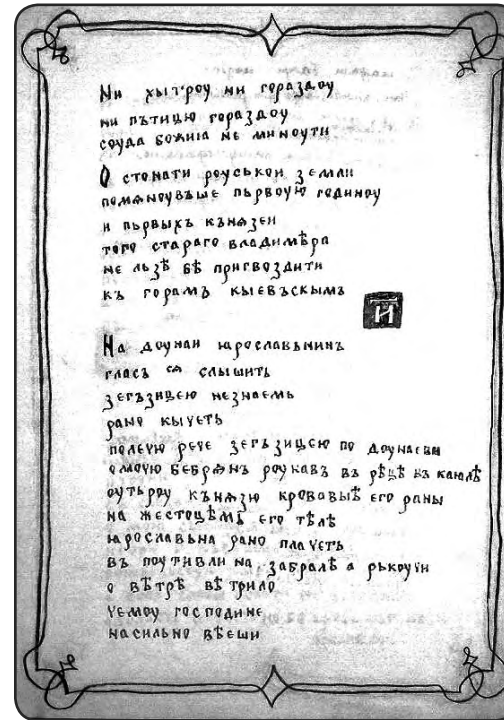 Ни хытроу ни гораздоу
ни пътицю гораздоу
соуда божиꙗ не миноути
О стонати роуськои земли
помѧноувъше пьрвоую годиноу
и пьрвыхъ кънѧзеи
того стараго владимѣра
не льзѣ бѣ пригвоздити
къ горамъ кыевъскымъ
На доунаи ꙗрославьнинъ
гласъ сѧ слышить
зегъзицею незнаемь
рано кычеть
полечю рече зегъзицею по доунаеви
омочю бебрѧнъ роукавъ въ рѣцѣ въ каꙗлѣ
оутьроу кънѧзю кровавыѣ его раны
на жестоцѣмь его тѣлѣ
ꙗрославьна рано плачеть
въ поутивли на забралѣ а ръкоучи
о вѣтрѣ вѣтрило
чемоу господине
насильно вѣеши